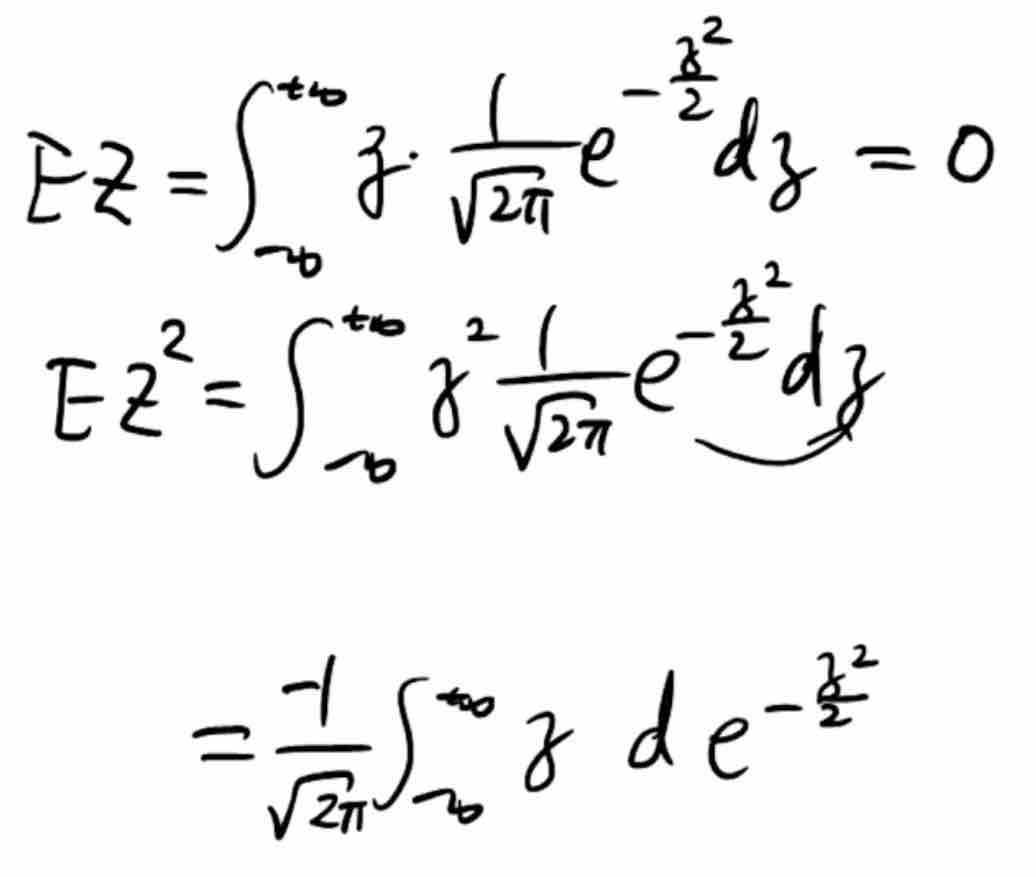 EZ = ∫_{-∞}^{+∞} z · \frac{1}{\sqrt{2π}} e^{-\frac{z^2}{2}} dz = 0
EZ^2 = ∫_{-∞}^{+∞} z^2 \frac{1}{\sqrt{2π}} e^{-\frac{z^2}{2}} dz
= \frac{-1}{\sqrt{2π}} ∫_{-∞}^{+∞} z d e^{-\frac{z^2}{2}}